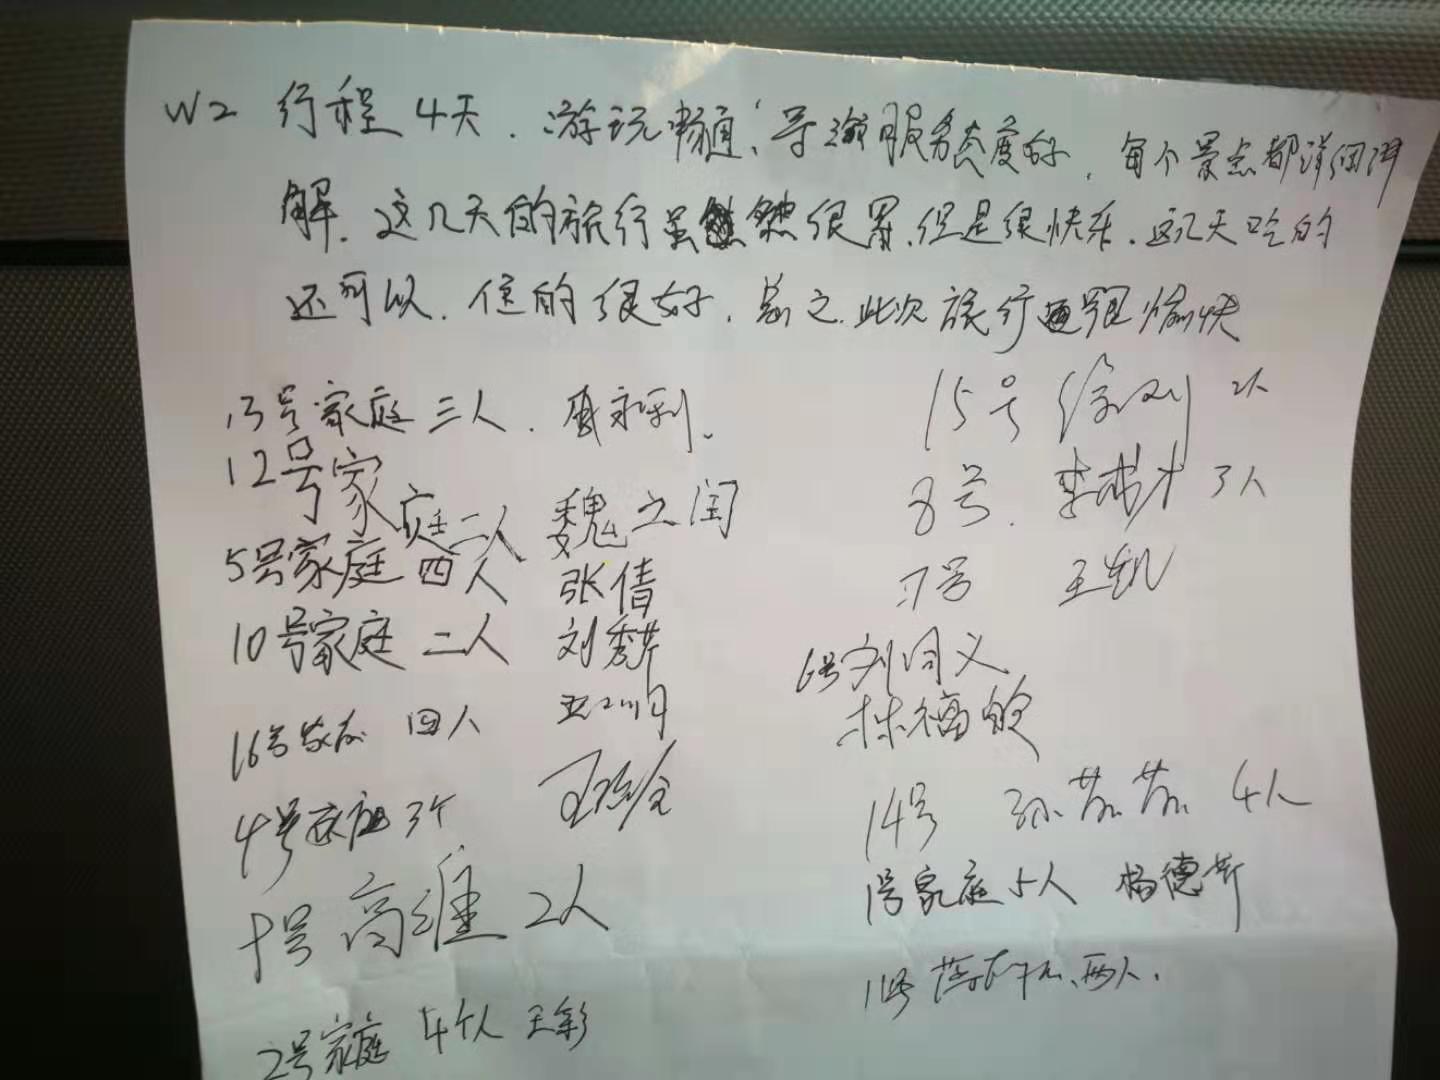 W2 行程4天.游玩畅通、导游服务态度好,每个景点都详细讲
解.这几天的旅行虽然很累,但是很快乐.这几天吃的
还可以.住的很好.总之.此次旅行愉快
13号家庭 三人.唐永利.
12号家庭二人 魏之闰
5号家庭 四人 张倩
10号家庭 二人 刘秀芹
16号家庭 四人
4号家庭3个
号 高维 2人
2号家庭 4个人 王彩
15号 徐刚 2人
8号. 李 3人
号 王凯
6号刘同义
林福的
14号 孙 4人
1号家庭5人 杨德新
号 两人.